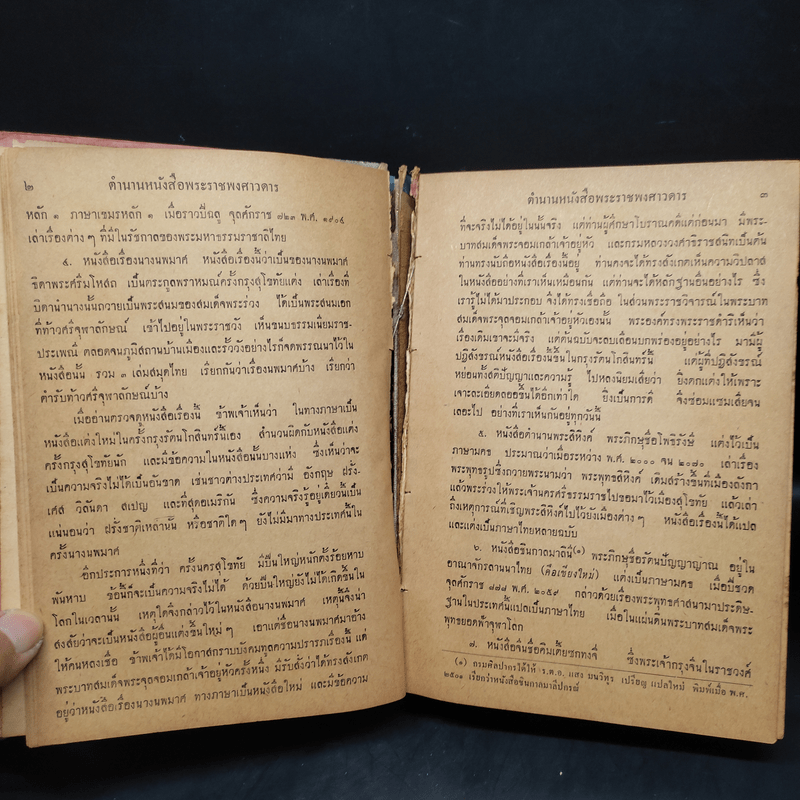 ๒ ตำนานหนังสือพระราชพงศาวดาร
หลัก ๑ ภาษาเขมรหลัก ๑ เมื่อราวปีฉลู จุลศักราช ๗๒๓ พ.ศ. ๑๙๐๔
เล่าเรื่องต่าง ๆ ที่มีในรัชกาลของพระมหาธรรมราชาลิไทย
๔. หนังสือเรื่องนางนพมาศ หนังสือเรื่องนี้ว่าเป็นของนางนพมาศ
ธิดาพระศรีมโหสถ เป็นตระกูลพราหมณ์ครั้งกรุงสุโขทัยแต่ง เล่าเรื่องที่
บิดานำนางนั้นถวายเป็นพระสนมของสมเด็จพระร่วง ได้เป็นพระสนมเอก
ที่ท้าวศรีจุฬาลักษณ์ เข้าไปอยู่ในพระราชวัง เห็นขนบธรรมเนียมราช-
ประเพณี ตลอดจนภูมิสถานบ้านเมืองและรั้ววังอย่างไรก็จดพรรณนาไว้ใน
หนังสือนั้น รวม ๓ เล่มสมุดไทย เรียกกันว่าเรื่องนพมาศบ้าง เรียกว่า
ตำรับท้าวศรีจุฬาลักษณ์บ้าง
เมื่ออ่านตรวจดูหนังสือเรื่องนี้ ข้าพเจ้าเห็นว่า ในทางภาษาเป็น
หนังสือแต่งใหม่ในครั้งกรุงรัตนโกสินทร์นี้เอง สำนวนผิดกับหนังสือแต่ง
ครั้งกรุงสุโขทัยนัก และมีข้อความในหนังสือนั้นบางแห่ง ซึ่งเห็นว่าจะ
เป็นความจริงไม่ได้เป็นอันขาด เช่นชาวต่างประเทศว่ามี อังกฤษ ฝรั่ง-
เศส วิลันดา สเปญ และที่สุดอเมริกัน ซึ่งความจริงรู้อยู่เดี๋ยวนี้เป็น
แน่นอนว่า ฝรั่งชาติเหล่านั้น หรือชาติใด ๆ ยังไม่มีมาทางประเทศนี้ใน
ครั้งนางนพมาศ
อีกประการหนึ่งที่ว่า ครั้งนครสุโขทัย มีปืนใหญ่หนักตั้งร้อยหาบ
พันหาบ ข้อนี้ก็จะเป็นความจริงไม่ได้ ด้วยปืนใหญ่ยังไม่ได้เกิดขึ้นใน
โลกในเวลานั้น เหตุใดจึงกล่าวไว้ในหนังสือนางนพมาศ เหตุนี้จึงน่า
สงสัยว่าจะเป็นหนังสือผู้อื่นแต่งขึ้นใหม่ ๆ เอาแต่ชื่อนางนพมาศมาอ้าง
ให้คนหลงเชื่อ ข้าพเจ้าได้มีโอกาสกราบบังคมทูลความปรารภเรื่องนี้ แด่
พระบาทสมเด็จพระจุลจอมเกล้าเจ้าอยู่หัวครั้งหนึ่ง มีรับสั่งว่าได้ทรงสังเกต
อยู่ว่าหนังสือเรื่องนางนพมาศ ทางภาษาเป็นหนังสือใหม่ และมีข้อความ
ตำนานหนังสือพระราชพงศาวดาร ๓
ที่จะจริงไม่ได้อยู่ในนั้นจริง แต่ท่านผู้ศึกษาโบราณคดีแต่ก่อนมา มีพระ-
บาทสมเด็จพระจอมเกล้าเจ้าอยู่หัว และกรมหลวงวงศาธิราชสนิทเป็นต้น
ท่านทรงนับถือหนังสือเรื่องนี้อยู่ ท่านคงจะได้ทรงสังเกตเห็นความวิปลาส
ในหนังสืออย่างที่เราเห็นเหมือนกัน แต่ท่านจะได้หลักฐานอื่นอย่างไร ซึ่ง
เรารู้ไม่ได้มาประกอบ จึงได้ทรงเชื่อถือ ในส่วนพระราชวิจารณ์ในพระบาท
สมเด็จพระจุลจอมเกล้าเจ้าอยู่หัวเองนั้น พระองค์ทรงพระดำริเห็นว่า
เรื่องเดิมเขาจะมีจริง แต่ต้นฉบับจะลบเลือนบกพร่องอยู่อย่างไร มามีผู้
ปฏิสังขรณ์หนังสือเรื่องนี้ขึ้นในกรุงรัตนโกสินทร์นี้ แต่ผู้ที่ปฏิสังขรณ์
หย่อนทั้งสติปัญญาและความรู้ ไปหลงนิยมเสียว่า ยิ่งตกแต่งให้เพราะ
เจาะละเอียดลออขึ้นได้อีกเท่าใด ยิ่งเป็นการดี จึงซ่อมแซมเสียจน
เลอะไป อย่างที่เราเห็นกันอยู่ทุกวันนี้
๕. หนังสือตำนานพระสิหิงค์ พระภิกษุชื่อโพธิรังษี แต่งไว้เป็น
ภาษามคธ ประมาณว่าเมื่อระหว่าง พ.ศ. ๒๐๐๐ จน ๒๐๗๐ เล่าเรื่อง
พระพุทธรูปซึ่งถวายพระนามว่า พระพุทธสิหิงค์ เดิมสร้างขึ้นที่เมืองลังกา
แล้วพระร่วงให้พระเจ้านครศรีธรรมราชไปขอมาไว้เมืองสุโขทัย แล้วเล่า
ถึงเหตุการณ์ที่เชิญพระสิหิงค์ไปไว้ยังเมืองต่าง ๆ หนังสือเรื่องนี้ได้แปล
และแต่งเป็นภาษาไทยหลายฉบับ
๖. หนังสือชินกาลมาลินี(๑) พระภิกษุชื่อรัตนปัญญาญาณ อยู่ใน
อาณาจักรลานนาไทย (คือเชียงใหม่) แต่งเป็นภาษามคธ เมื่อปีชวด
จุลศักราช ๘๗๘ พ.ศ. ๒๐๕๙ กล่าวด้วยเรื่องพระพุทธศาสนามาประดิษ-
ฐานในประเทศนี้แปลเป็นภาษาไทย เมื่อในแผ่นดินพระบาทสมเด็จพระ-
พุทธยอดฟ้าจุฬาโลก
๗. หนังสือจีนชื่อคิมเตี้ยซกทงจี่ ซึ่งพระเจ้ากรุงจีนในราชวงศ์
(๑) กรมศิลปากรได้ให้ ร.ต.ท. แสง มนวิทูร เปรียญ แปลใหม่ พิมพ์เมื่อ พ.ศ.
๒๕๐๑ เรียกว่าหนังสือชินกาลมาลีปกรณ์